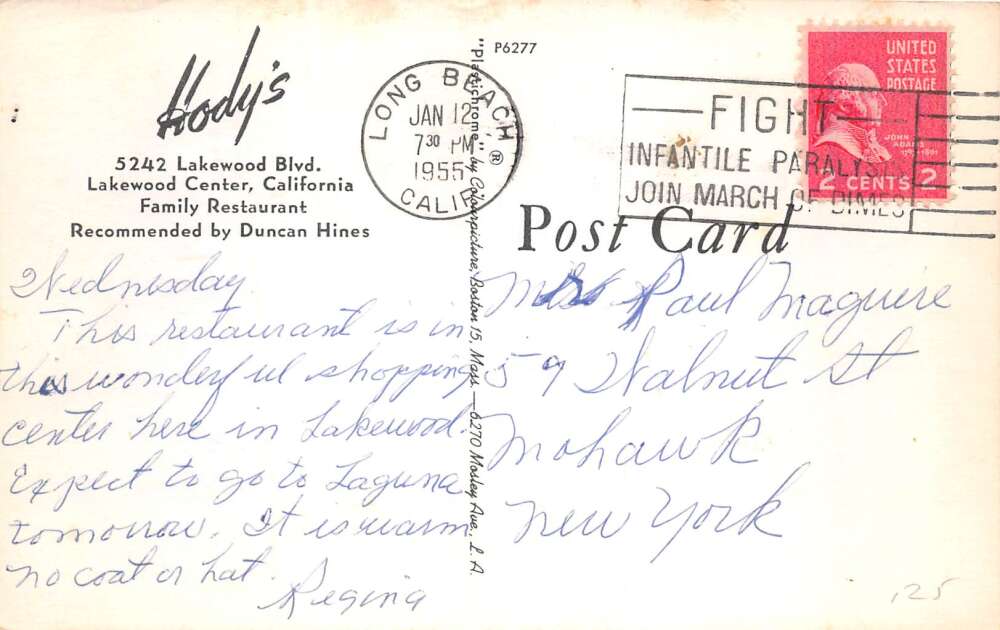 Hody's
5242 Lakewood Blvd.
Lakewood Center, California
Family Restaurant
Recommended by Duncan Hines
Wednesday
This restaurant is in
this wonderful shopping
center here in Lakewood.
Expect to go to Laguna
tomorrow. It is warm
no coat or hat.
Regina
"Plastichrome" ® by Colourpicture, Boston 15, Mass. — 6270 Mosley Ave., L. A.
P6277
LONG BEACH
JAN 12
7 30 PM
1955
CALIF.
FIGHT
INFANTILE PARALYSIS
JOIN MARCH OF DIMES
UNITED
STATES
POSTAGE
JOHN
ADAMS
2 CENTS 2
Post Card
Mrs Paul Maguire
59 Walnut St
Mohawk
New York
125